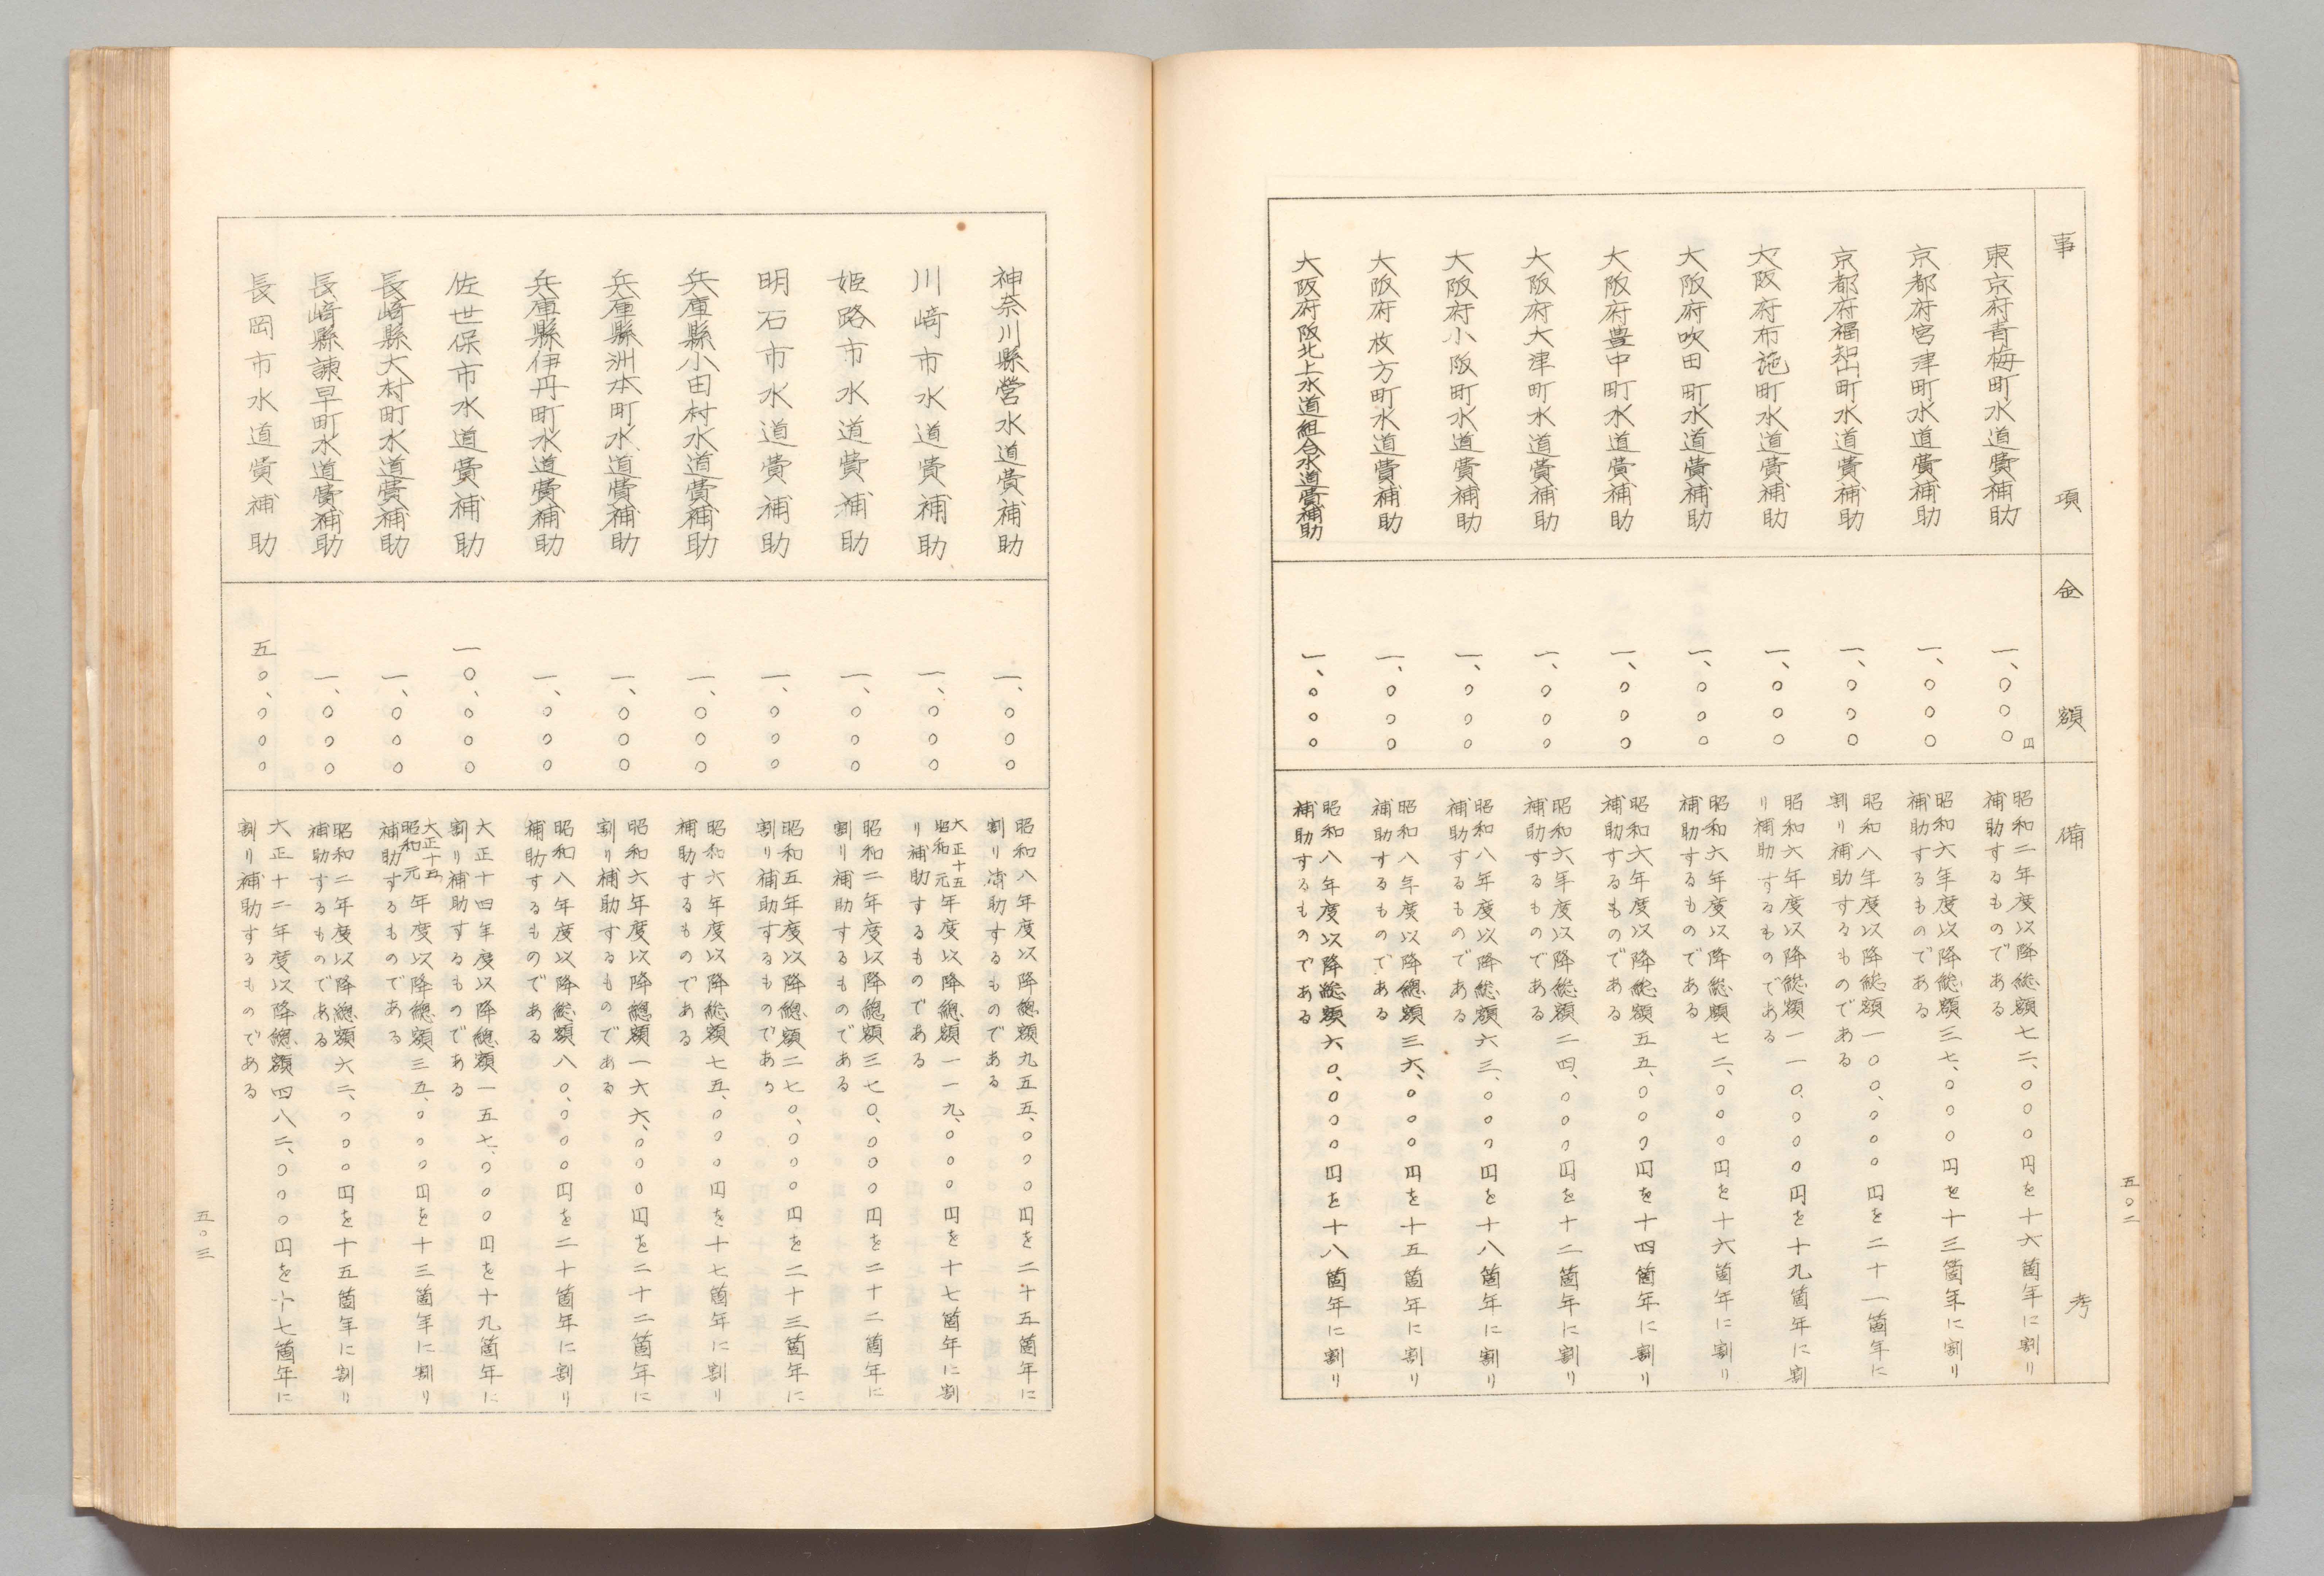 五〇二
事項
金額
備考
東京府青梅町水道費補助
一、〇〇〇円
昭和二年度以降総額七二、〇〇〇円を十六箇年に割り
補助するものである
京都府宮津町水道費補助
一、〇〇〇
昭和六年度以降総額三七、〇〇〇円を十三箇年に割り
補助するものである
京都府福知山町水道費補助
一、〇〇〇
昭和八年度以降総額一〇〇、〇〇〇円を二十一箇年に
割り補助するものである
大阪府布施町水道費補助
一、〇〇〇
昭和六年度以降総額一一〇、〇〇〇円を十九箇年に割
り補助するものである
大阪府吹田町水道費補助
一、〇〇〇
昭和六年度以降総額七二、〇〇〇円を十六箇年に割り
補助するものである
大阪府豊中町水道費補助
一、〇〇〇
昭和六年度以降総額五五、〇〇〇円を十四箇年に割り
補助するものである
大阪府大津町水道費補助
一、〇〇〇
昭和六年度以降総額二四、〇〇〇円を十二箇年に割り
補助するものである
大阪府小阪町水道費補助
一、〇〇〇
昭和八年度以降総額六三、〇〇〇円を十八箇年に割り
補助するものである
大阪府枚方町水道費補助
一、〇〇〇
昭和八年度以降總額三六、〇〇〇円を十五箇年に割り
補助するものである
大阪府阪北上水道組合水道費補助
一、〇〇〇
昭和八年度以降総額六〇、〇〇〇円を十八箇年に割り
補助するものである
神奈川縣営水道費補助
一、〇〇〇
昭和八年度以降總額九五五、〇〇〇円を二十五箇年に
割り補助するものである
川崎市水道費補助
一、〇〇〇
大正十五
昭和元年度以降總額一一九、〇〇〇円を十七箇年に割
り補助するものである
姫路市水道費補助
一、〇〇〇
昭和二年度以降總額三七〇、〇〇〇円を二十二箇年に
割り補助するものである
明石市水道費補助
一、〇〇〇
昭和五年度以降總額二七〇、〇〇〇円を二十三箇年に
割り補助するものである
兵庫縣小田村水道費補助
一、〇〇〇
昭和六年度以降総額七五、〇〇〇円を十七箇年に割り
補助するものである
兵庫縣洲本町水道費補助
一、〇〇〇
昭和六年度以降總額一六六、〇〇〇円を二十二箇年に
割り補助するものである
兵庫縣伊丹町水道費補助
一、〇〇〇
昭和八年度以降総額八〇、〇〇〇円を二十箇年に割り
補助するものである
佐世保市水道費補助
一〇、〇〇〇
大正十四年度以降總額一五七、〇〇〇円を十九箇年に
割り補助するものである
長崎縣大村町水道費補助
一、〇〇〇
大正十五
昭和元年度以降總額三五、〇〇〇円を十三箇年に割り
補助するものである
長崎縣諫早町水道費補助
一、〇〇〇
昭和二年度以降總額六二、〇〇〇円を十五箇年に割り
補助するものである
長岡市水道費補助
五〇、〇〇〇
大正十二年度以降總額四八二、〇〇〇円を十七箇年に
割り補助するものである
五〇三